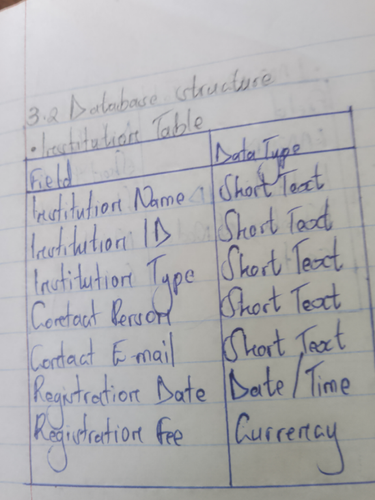 3.2 Database structure
• Institution Table
Field Data Type
Institution Name Short Text
Institution ID Short Text
Institution Type Short Text
Contact Person Short Text
Contact E-mail Short Text
Registration Date Date/Time
Registration fee Currency